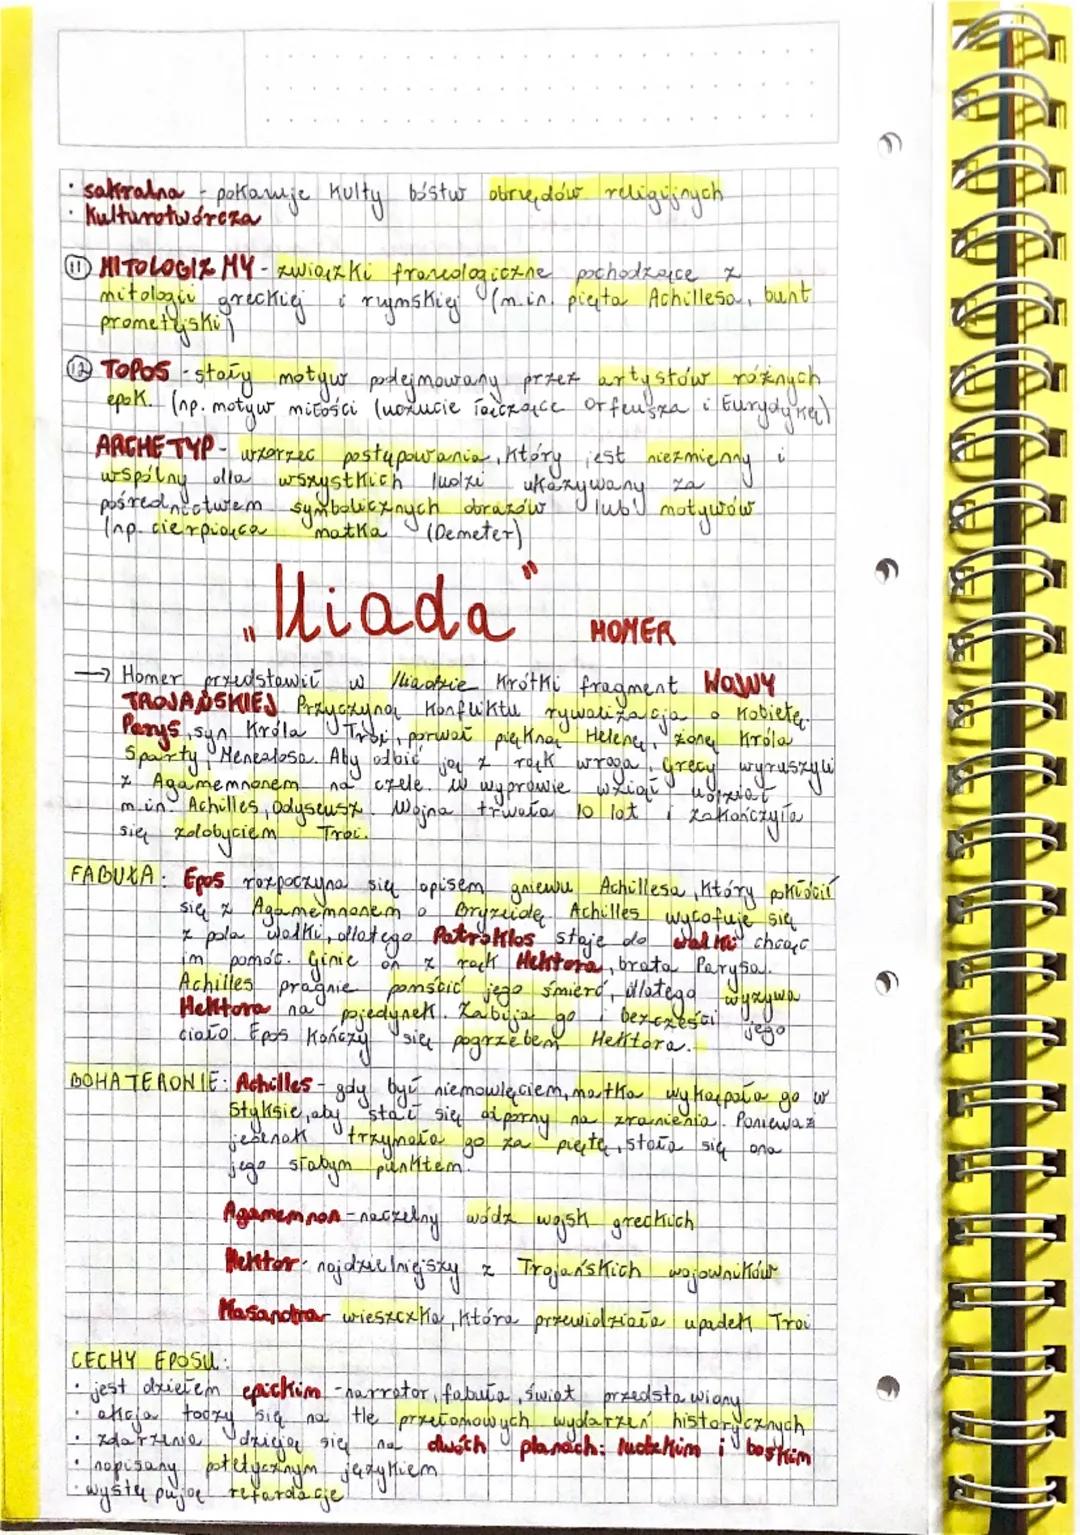 · sakralna - pokazuje kulty bóstw obrzędów religijnych
· kulturotwórcza
11 MITOLOGIZMY - związki frazeologiczne pochodzące z
mitologii greckiej i rzymskiej (m.in. pięta Achillesa, bunt
prometejski)
12 TOPOS - stały motyw podejmowany przez artystów różnych
epok. (np. motyw miłości (uczucie łączące Orfeusza i Eurydykę)
ARCHETYP - wzorzec postępowania, który jest niezmienny i
wspólny dla wszystkich ludzi ukazywany za
pośrednictwem symbolicznych obrazów lub motywów
(np. cierpiąca matka (Demeter)
„Iliada" HOMER
→ Homer przedstawił w Iliadzie krótki fragment WOJNY
TROJAŃSKIEJ Przyczyną konfliktu rywalizacja o kobietę.
Parys, syn króla Troi, porwał piękną Helenę, żonę króla
Sparty, Menealosa. Aby odbić ją z rąk wroga, Grecy wyruszyli
z Agamemnonem na czele. W wyprawie wzięli udział
m.in. Achilles, Odyseusz. Wojna trwała 10 lat i zakończyła
się zdobyciem Troi.
FABUŁA: Epos rozpoczyna się opisem gniewu Achillesa, który pokłócił
się z Agamemnonem o Bryzeidę. Achilles wycofuje się
z pola walki, dlatego Patroklos staje do walki chcąc
im pomóc. Ginie on z rąk Hektora, brata Parysa.
Achilles pragnie pomścić jego śmierć, dlatego wyzywa
Hektora na pojedynek. Zabija go i bezcześci jego
ciało. Epos kończy się pogrzebem Hektora.
BOHATEROWIE: Achilles - gdy był niemowlęciem, matka wykąpała go w
Styksie, aby stał się odporny na zranienia. Ponieważ
jednak trzymała go za piętę, stała się ona
jego słabym punktem.
Agamemnon - naczelny wódz wojsk greckich
Hektor - najdzielniejszy z Trojańskich wojowników
Kasandra - wieszczka, która przewidziała upadek Troi
CECHY EPOSU:
· jest dziełem epickim - narrator, fabuła, świat przedstawiony
· akcja toczy się na tle przełomowych wydarzeń historycznych
· zdarzenia dzieją się na dwóch planach: ludzkim i boskim
· napisany patetycznym językiem
· występują retardacje